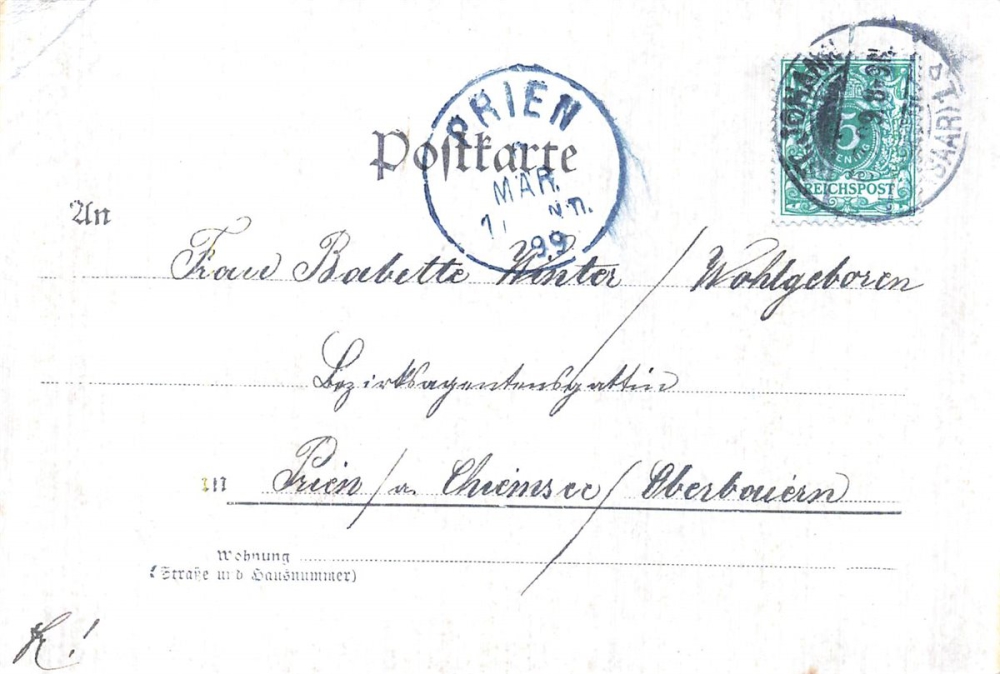 PRIEN
MAR.
99
Postkarte
ST. JOHANN (SAAR) 1
5
PFENNIG
REICHSPOST
An
Frau Babette Winter / Wohlgeboren
Bezirksagentensgattin
in Prien / a. Chiemsee / Oberbaiern
Wohnung
(Straße und Hausnummer)